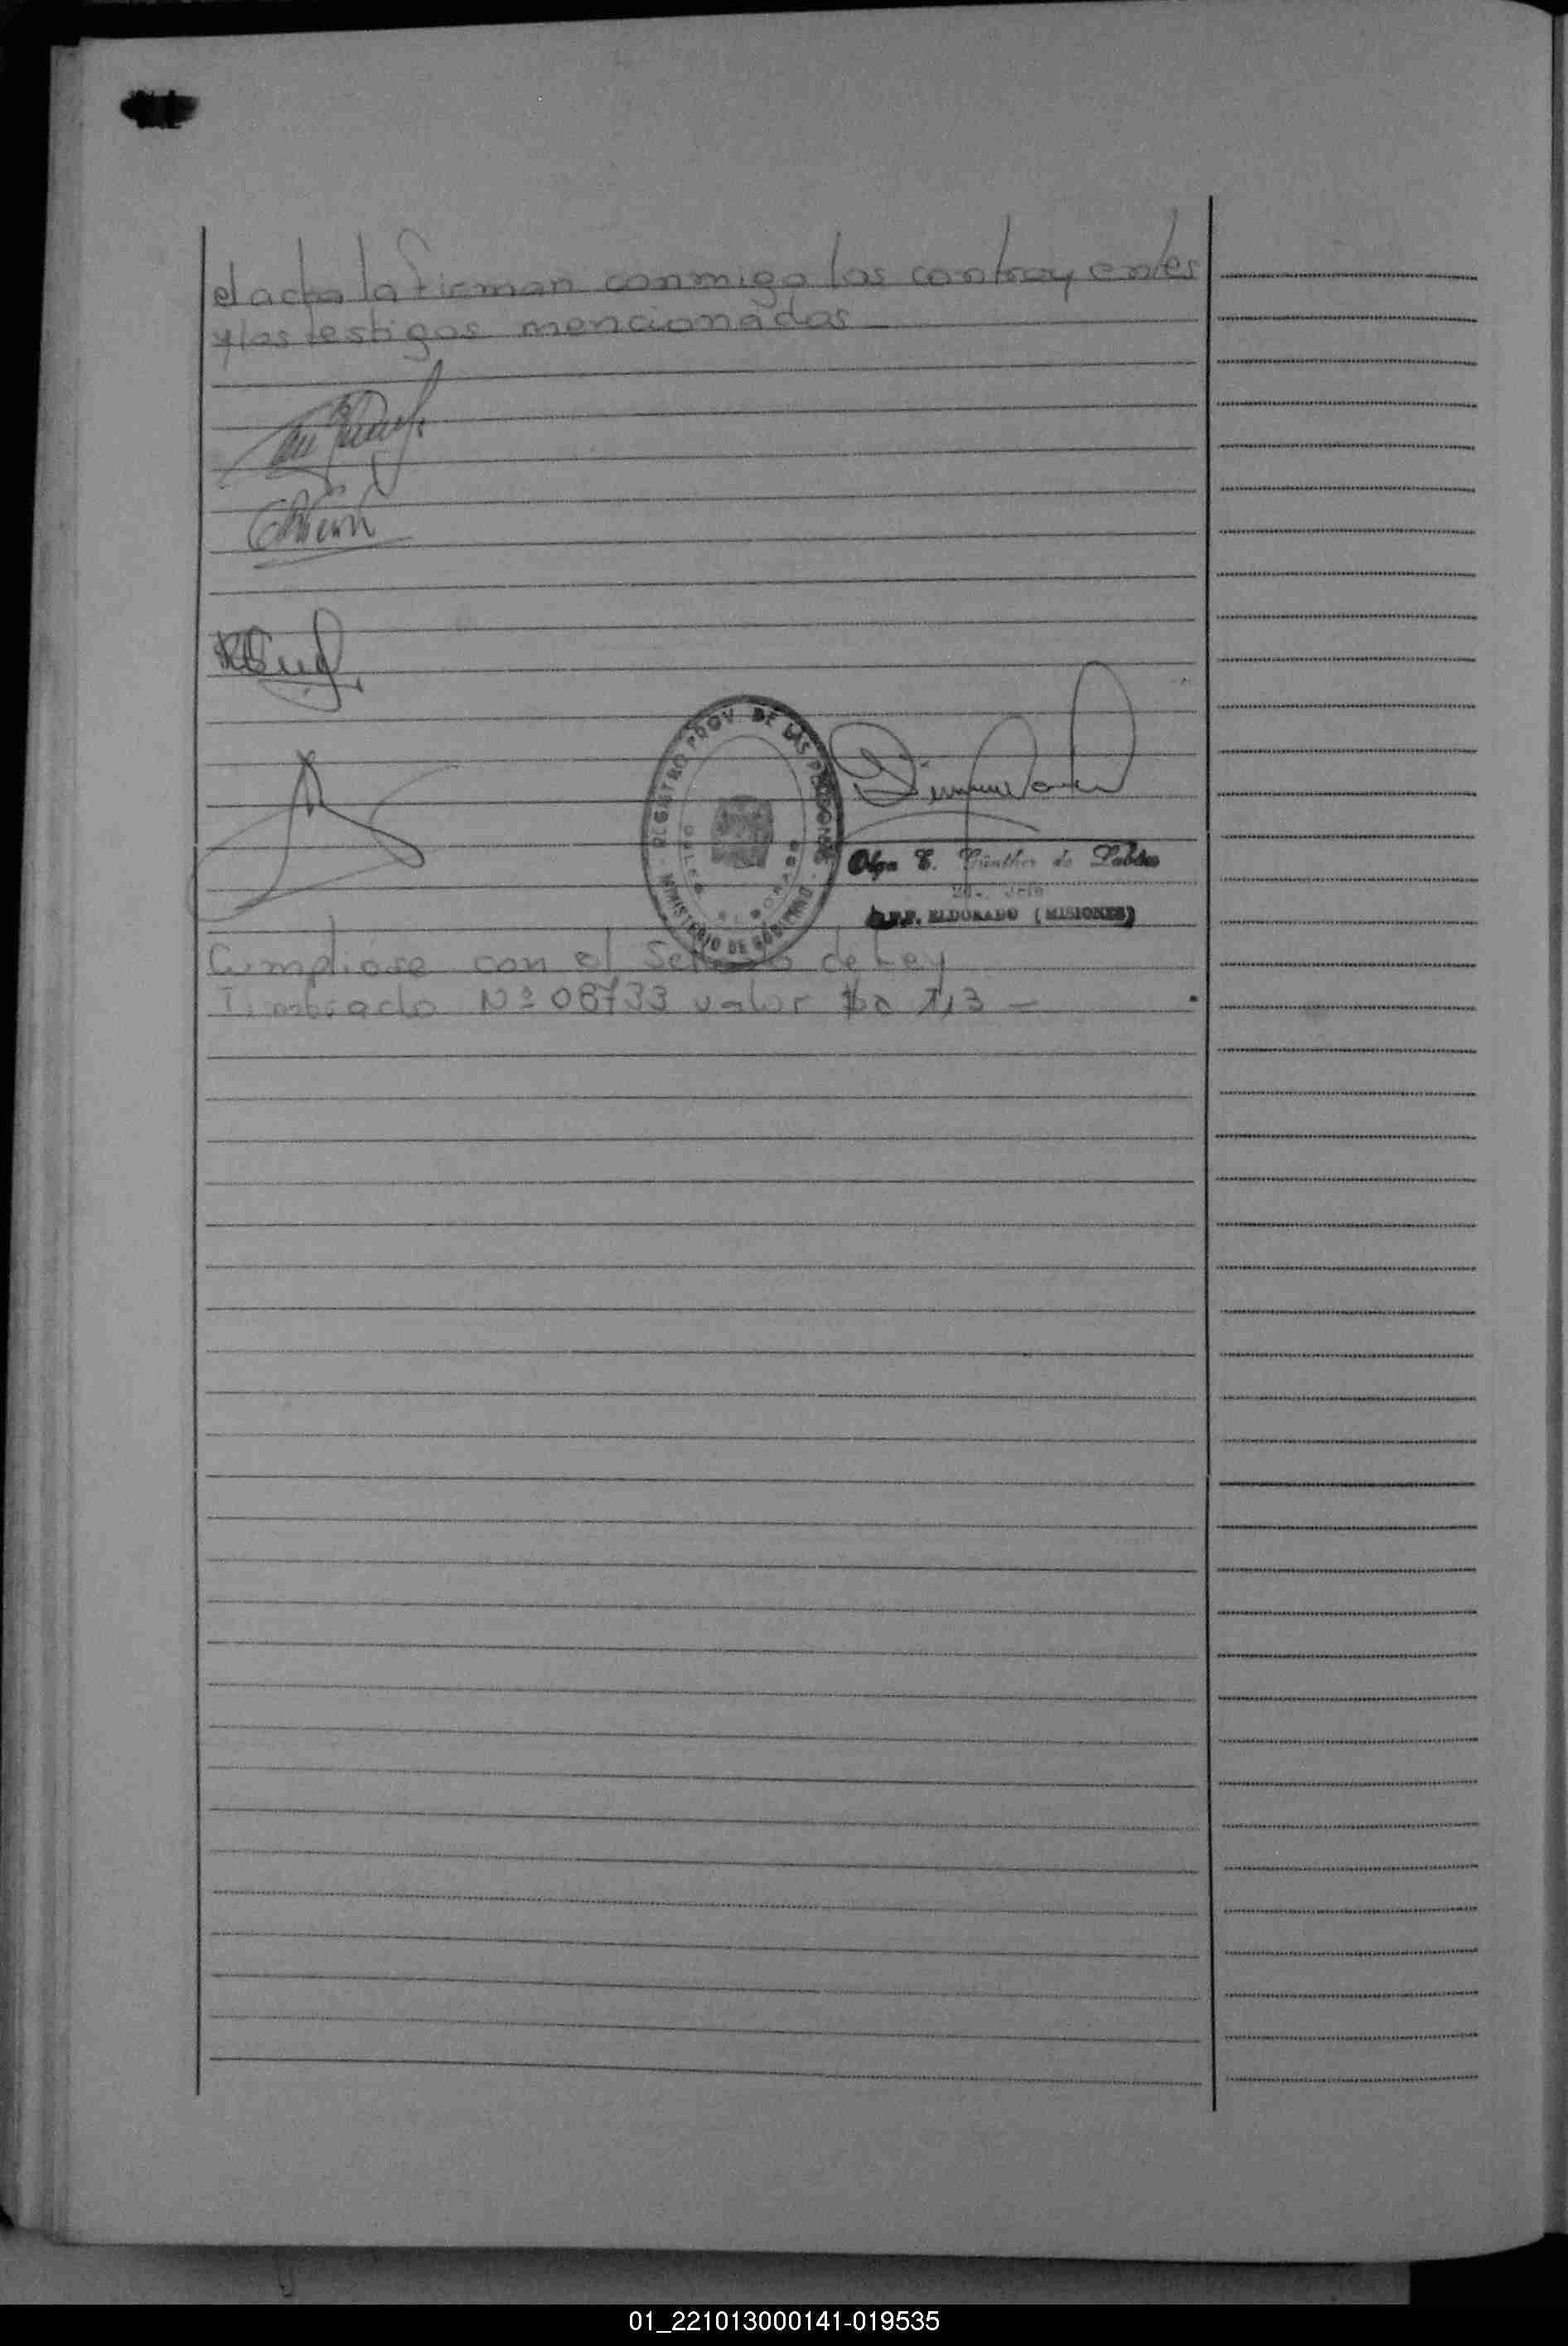 el acta la firman conmigo los contrayentes
y los testigos mencionados
REGISTRO PROV. DE LAS PERSONAS
MINISTERIO DE GOBIERNO
ELDORADO
Olga E. Günther de
Jefe
ELDORADO (MISIONES)
Cumpliose con el Sellado de Ley
Timbrado Nº 08733 valor $a 1,3 —
01_221013000141-019535